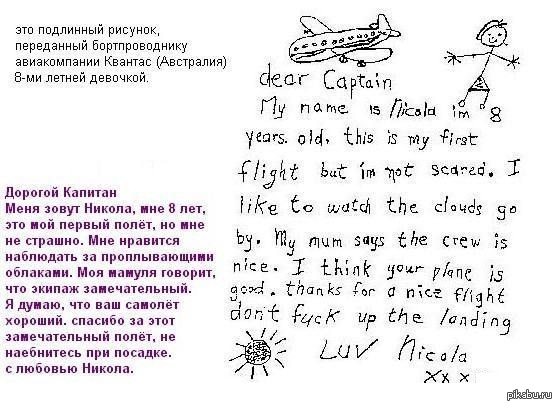 это подлинный рисунок,
переданный бортпроводнику
авиакомпании Квантас (Австралия)
8-ми летней девочкой.
dear Captain
My name is Nicola im 8
years. old, this is my first
flight but im not scared. I
like to watch the clouds go
by. My mum says the crew is
nice. I think your plane is
good. thanks for a nice flight
don't fuck up the landing
LUV Nicola
x x x
Дорогой Капитан
Меня зовут Никола, мне 8 лет,
это мой первый полёт, но мне
не страшно. Мне нравится
наблюдать за проплывающими
облаками. Моя мамуля говорит,
что экипаж замечательный.
Я думаю, что ваш самолёт
хороший. спасибо за этот
замечательный полёт, не
наебнитесь при посадке.
с любовью Никола.
pikabu.ru